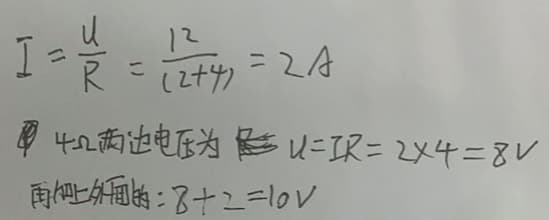 I = U/R = 12/(2+4) = 2A
4Ω两边电压为 U=IR=2×4=8V
再加上外面的:8+2=10V